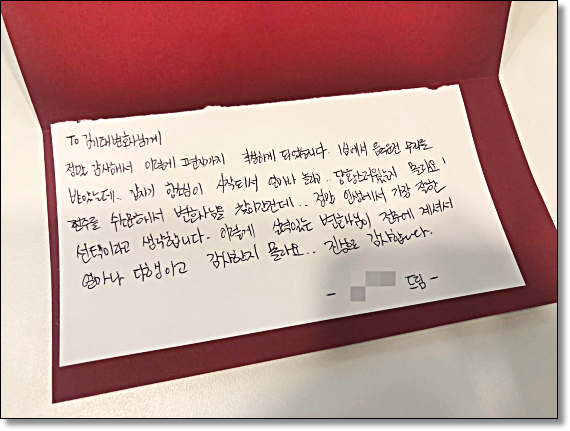 To 김기태변호사님께
정말 감사해서 이렇게 편지까지 작성하게 되었습니다. 1심에서 음주운전 무죄를
받았는데.. 갑자기 시작되서 얼마나 놀라고.. 당황스러웠는지 몰라요!
전주를 수소문해서 변호사님을 찾아간건데.. 정말 인생에서 가장 잘한
선택이라고 생각합니다. 이렇게 실력있는 변호사님이 전주에 계셔서
얼마나 다행이고 감사한지 몰라요.. 진심으로 감사합니다.
- 드림 -